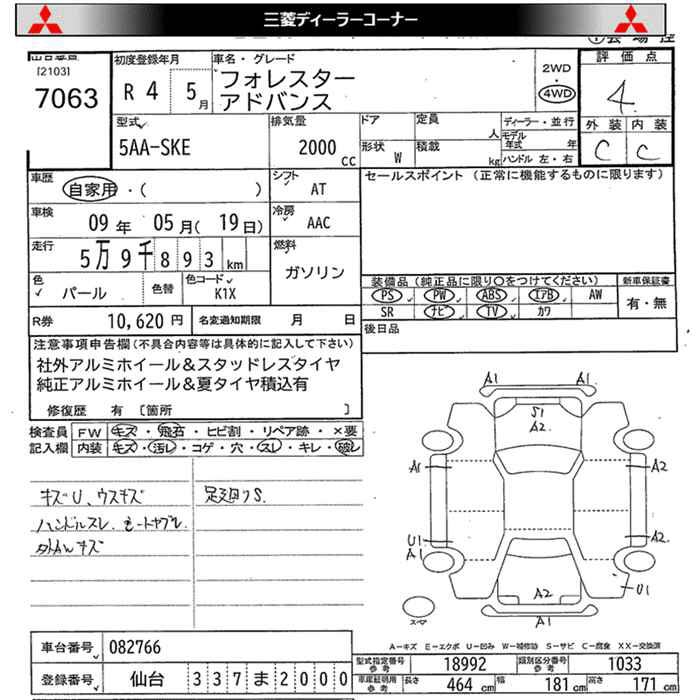 三菱ディーラーコーナー
[2103]
7063
初度登録年月
R 4 5月
車名・グレード
フォレスター
アドバンス
2WD
4WD
評価点
4
外装 内装
C C
型式
5AA-SKE
排気量
2000 cc
ドア
定員 人
形状 W
積載 kg
ディーラー・並行
モデル年式 年
ハンドル 左・右
車歴
自家用・( )
シフト
AT
車検
09年 05月(19日)
冷房
AAC
走行
5万9千893km
燃料
ガソリン
色
パール
色替
色コード
K1X
R券 10,620円
名変通知期限 月 日
セールスポイント (正常に機能するものに限ります)
装備品(純正品に限り○をつけてください)
PS PW ABS エアB AW
SR ナビ TV カワ
新車保証書
有・無
後日品
注意事項申告欄(不具合内容等は具体的に記入して下さい)
社外アルミホイール&スタッドレスタイヤ
純正アルミホイール&夏タイヤ積込有
修復歴 有 [箇所 ]
検査員記入欄
FW キズ・飛石・ヒビ割・リペア跡・×要
内装 キズ・汚レ・コゲ・穴・スレ・キレ・破レ
キズU、ウスキズ
ハンドルスレ、シートヤブレ
足廻りS
A1 A1
S1
A2
A1 A2
U1
A1
A2
U1
A2
A1
A-キズ E-エクボ U-凹み W-補修跡 S-サビ C-腐食 XX-交換済
車台番号 082766
登録番号 仙台 337ま2000
型式指定番号 参考 18992
類別区分番号 参考 1033
車庫証明用 参考 長さ 464cm 幅 181cm 高さ 171cm